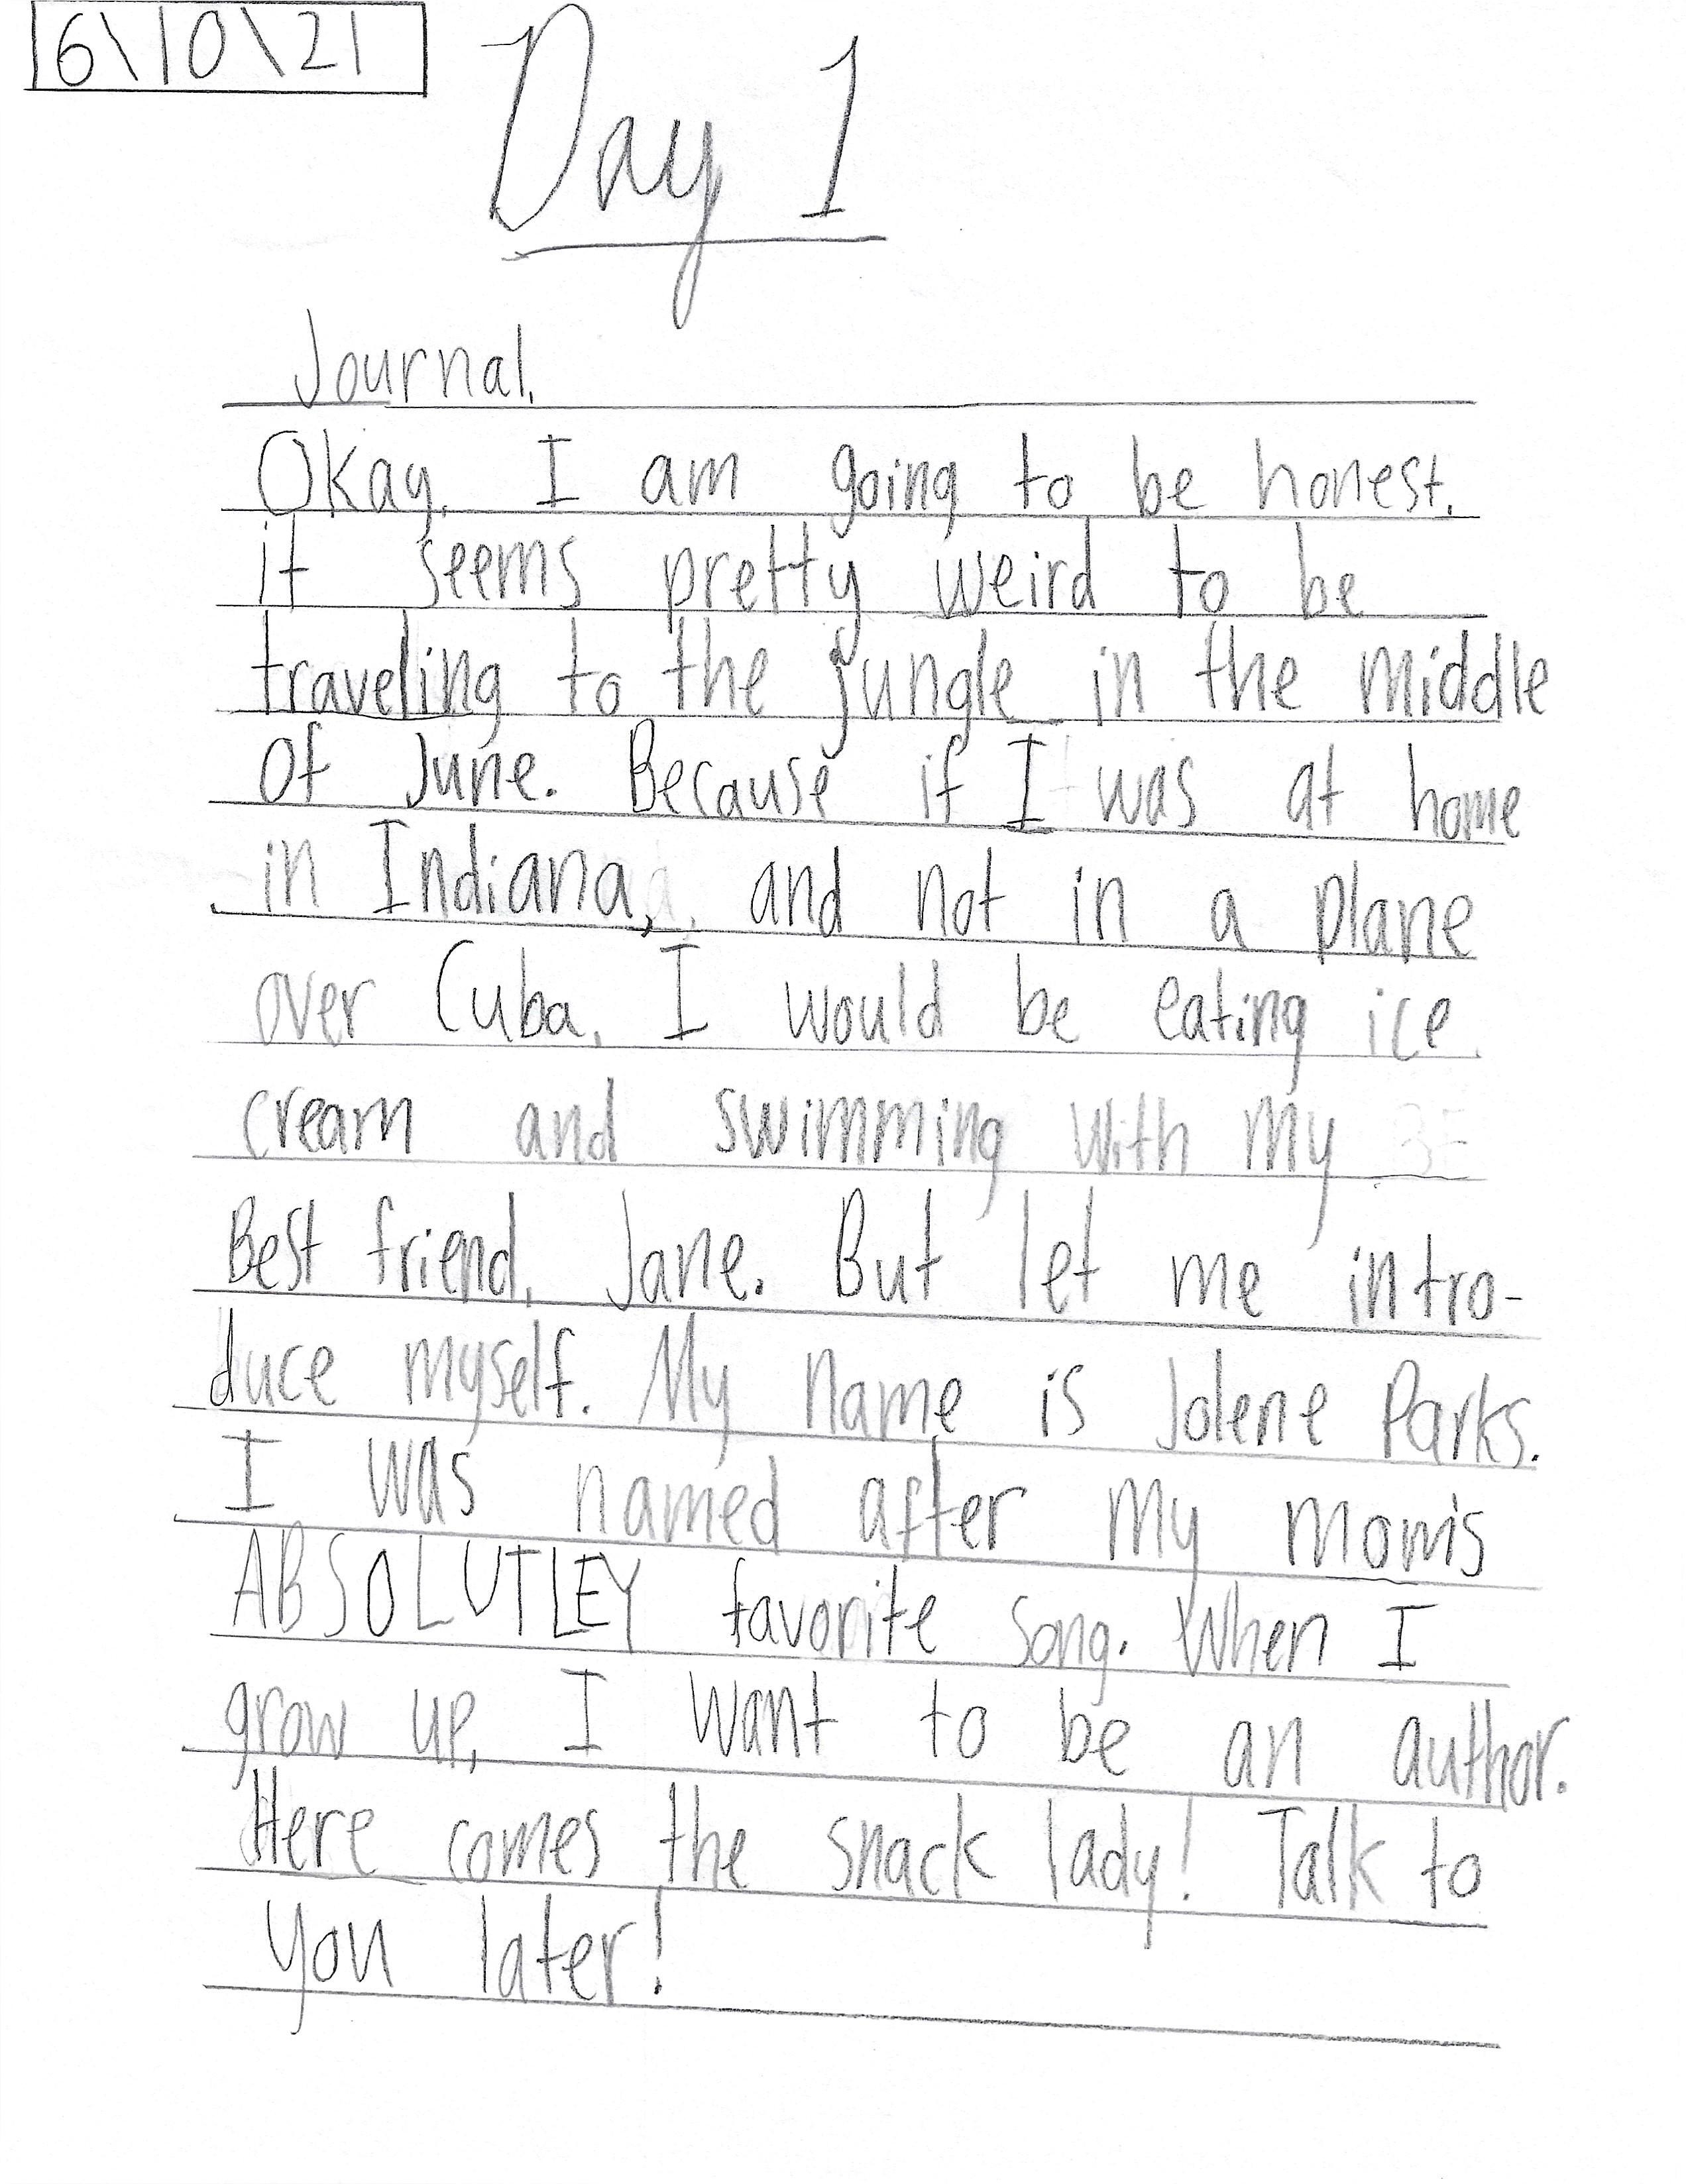 6\10\21
Day 1
Journal,
Okay, I am going to be honest,
it seems pretty weird to be
traveling to the jungle in the middle
of June. Because if I was at home
in Indiana, and not in a plane
over Cuba, I would be eating ice
cream and swimming with my
Best friend, Jane. But let me intro-
duce myself. My name is Jolene Parks.
I was named after my mom's
ABSOLUTLEY favorite song. When I
grow up, I want to be an author.
Here comes the snack lady! Talk to
you later!